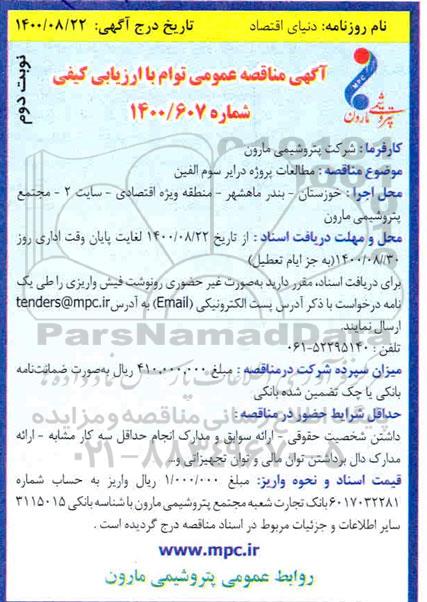 نام روزنامه: دنیای اقتصاد تاریخ درج آگهی: ۱۴۰۰/۰۸/۲۲
نوبت دوم
آگهی مناقصه عمومی توام با ارزیابی کیفی
شماره ۱۴۰۰/۶۰۷
MPC
پتروشیمی مارون
کارفرما : شرکت پتروشیمی مارون
موضوع مناقصه : مطالعات پروژه درایر سوم الفین
محل اجرا : خوزستان - بندر ماهشهر - منطقه ویژه اقتصادی - سایت ۲ - مجتمع
پتروشیمی مارون
محل و مهلت دریافت اسناد : از تاریخ ۱۴۰۰/۰۸/۲۲ لغایت پایان وقت اداری روز
۱۴۰۰/۰۸/۳۰(به جز ایام تعطیل)
برای دریافت اسناد، مقرر دارید به‌صورت غیر حضوری رونوشت فیش واریزی را طی یک
نامه درخواست با ذکر آدرس پست الکترونیکی (Email) به آدرس tenders@mpc.ir
ارسال نمایند.
تلفن : ۰۶۱-۵۲۲۹۵۱۴۰
میزان سپرده شرکت در مناقصه : مبلغ ۴۱۰,۰۰۰,۰۰۰ ریال به‌صورت ضمانت‌نامه
بانکی یا چک تضمین شده بانکی
حداقل شرایط حضور در مناقصه :
داشتن شخصیت حقوقی - ارائه سوابق و مدارک انجام حداقل سه کار مشابه - ارائه
مدارک دال بر داشتن توان مالی و توان تجهیزاتی و...
قیمت اسناد و نحوه واریز: مبلغ ۱/۰۰۰/۰۰۰ ریال واریز به حساب شماره
۶۰۱۷۰۳۲۲۸۱ بانک تجارت شعبه مجتمع پتروشیمی مارون با شناسه بانکی ۳۱۱۵۰۱۵
سایر اطلاعات و جزئیات مربوط در اسناد مناقصه درج گردیده است .
www.mpc.ir
روابط عمومی پتروشیمی مارون
ParsNamadData